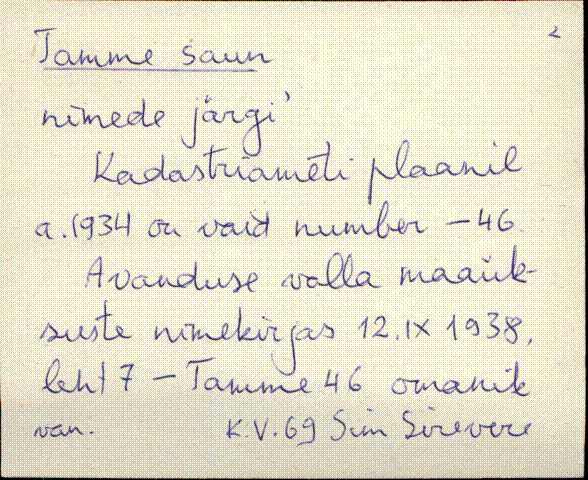 2
Tamme saun
nimede järgi'
Kadastriameti plaanil
a. 1934 on vaid number – 46.
Avanduse valla maaük-
suste nimekirjas 12.IX 1938,
leht 7 – Tamme 46 omanik
van. K.V.69 Sim Sirevere